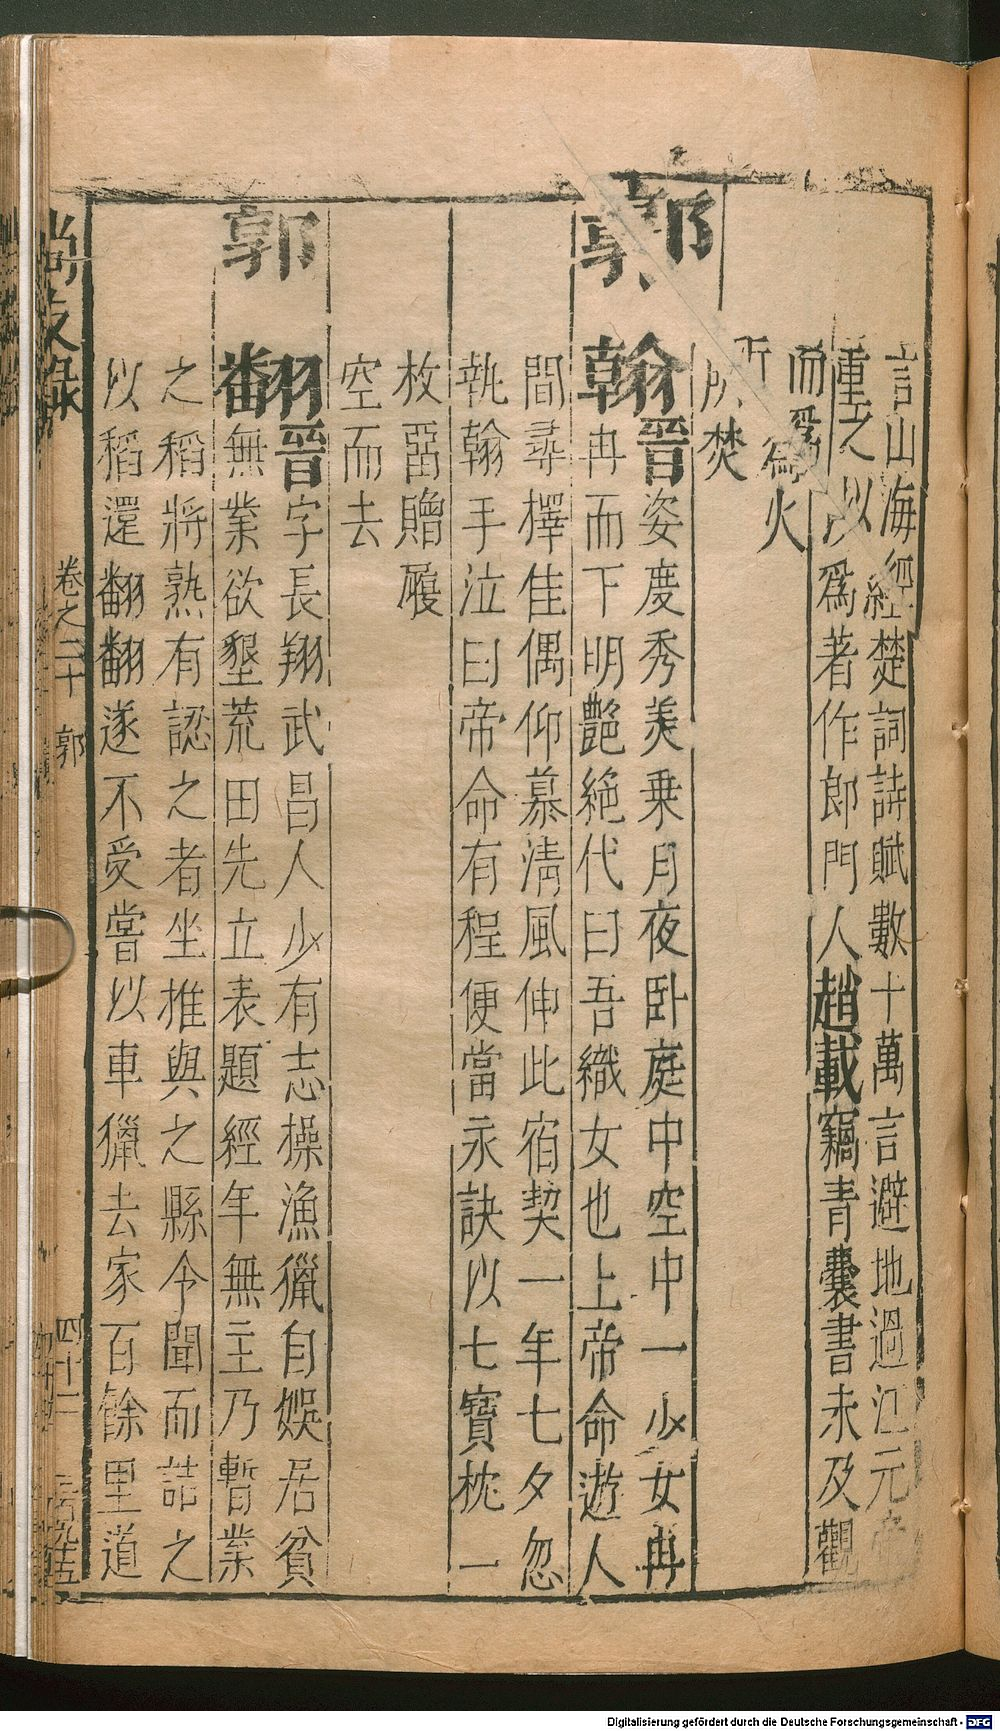 言山海經楚詞詩賦數十萬言避地過江元帝
重之以爲著作郎門人趙載竊青囊書未及觀
而爲火
所焚
郭翰晉姿慶秀美乗月夜卧庭中空中一少女冉
冉而下明艷絕代曰吾織女也上帝命遊人
間尋擇佳偶仰慕淸風伸此宿契一年七夕忽
執翰手泣曰帝命有程便當永訣以七寶枕一
枚畱贈履
空而去
郭翻晉字長翔武昌人少有志操漁獵自娛居貧
無業欲墾荒田先立表題經年無主乃暫業
之稻將熟有認之者坐推與之縣令聞而詰之
以稻還翻翻遂不受嘗以車獵去家百餘里道
尚友錄
卷之二十
郭
四十二
Digitalisierung gefördert durch die Deutsche Forschungsgemeinschaft - DFG